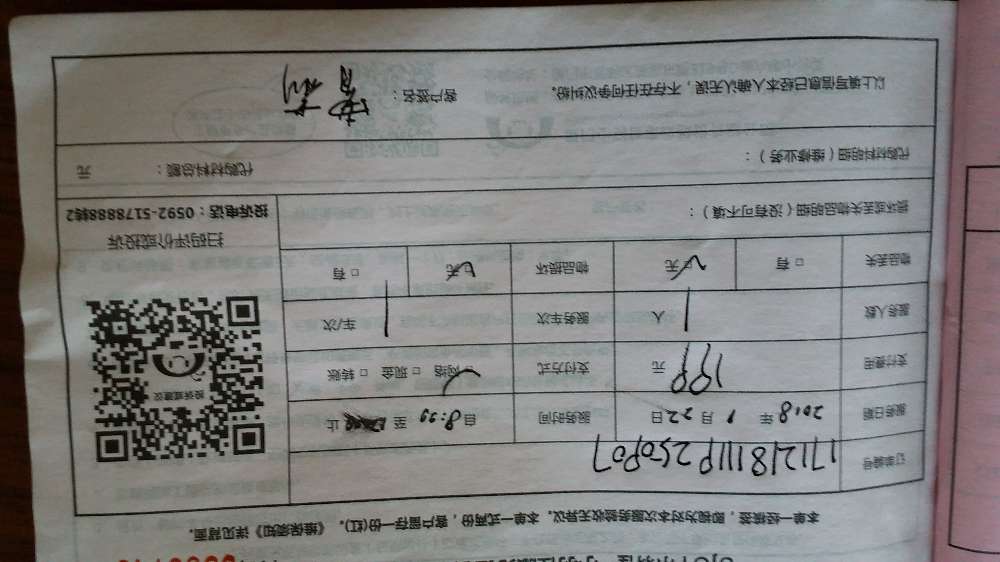 本单一经核签，即视为对本次服务验收无异议。本单一式两份，客户留存一份(红)。《维保须知》详见背面。
订单编号
服务日期 2018 年 1 月 22 日 服务时间 自 8:29 至 止
支付费用 199 元 支付方式 网络 □ 现金 □ 转账
服务人数 1 人 服务车次 1 车/次
物品丢失 □ 有 □ 无 物品损坏 □ 无 □ 有
损坏或丢失物品明细（没有可不填）：
投诉或建议
扫码评价或投诉
投诉电话：0592-5178888转2
代购材料明细（维修业务）： 代购材料总额： 元
以上填写信息已经本人确认无误，不存在任何争议纠纷。 客户签名：